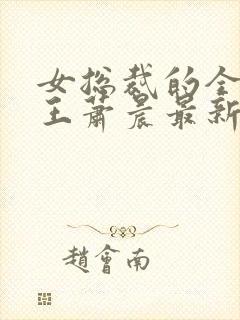 女总裁的全
王萧晨最新
趙會南